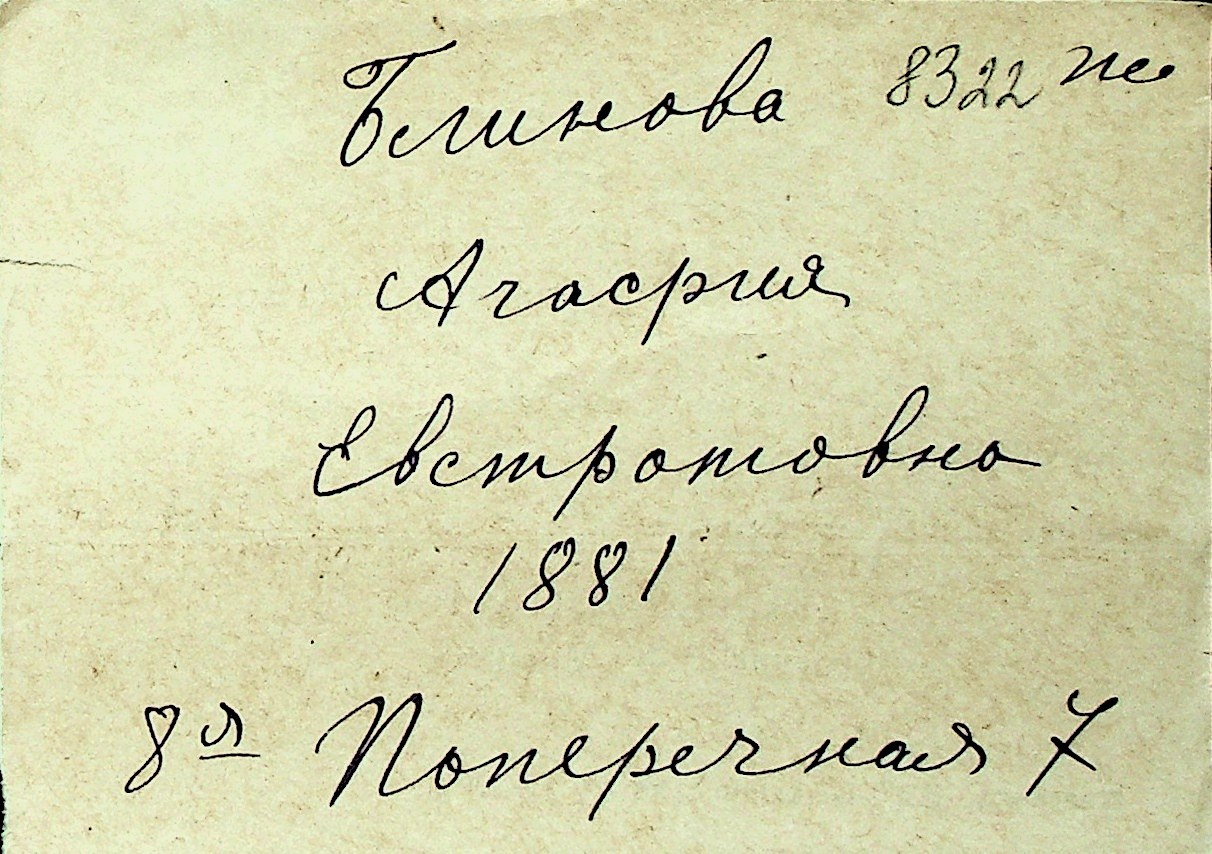 Блинова 8322 ж
Агасфия
Евстротовна
1881
8я Поперечная 7